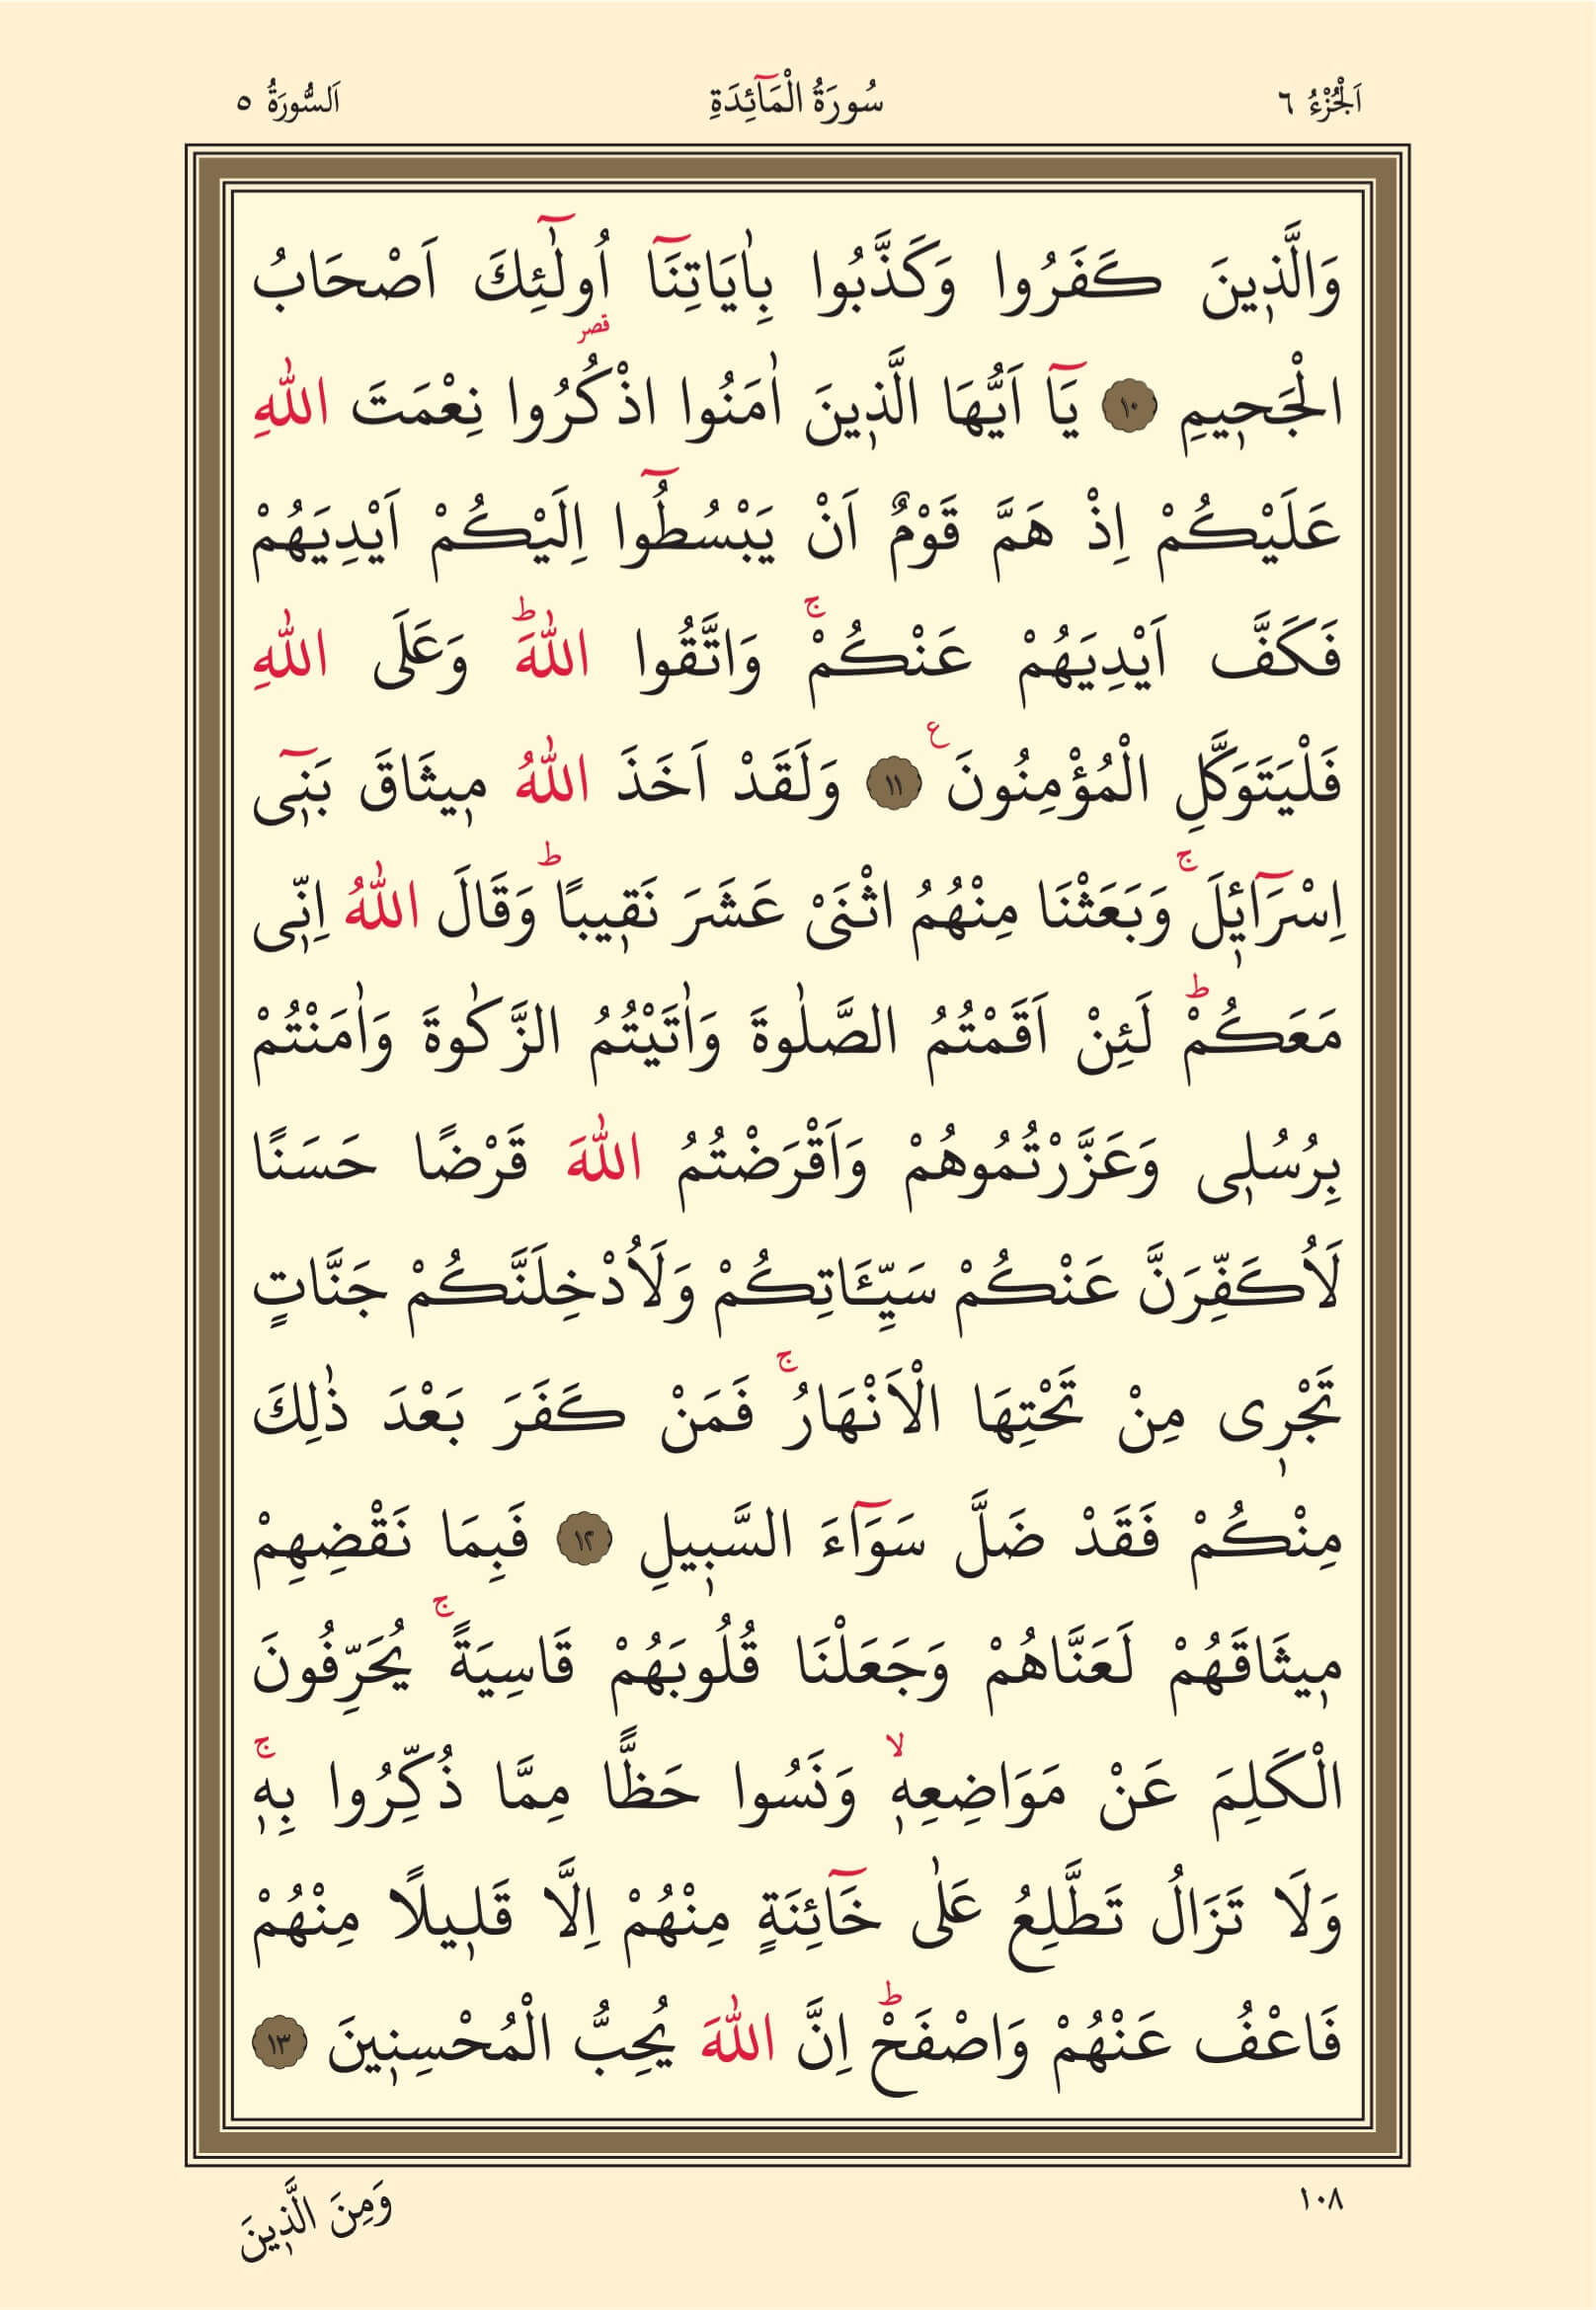 اَلْجُزْءُ ٦
سُورَةُ الْمَآئِدَةِ
اَلسُّورَةُ ٥
وَالَّذ۪ينَ كَفَرُوا وَكَذَّبُوا بِاٰيَاتِنَٓا اُو۬لٰٓئِكَ اَصْحَابُ
قصر
الْجَح۪يمِ ١٠ يَٓا اَيُّهَا الَّذ۪ينَ اٰمَنُوا اذْكُرُوا نِعْمَتَ اللّٰهِ
عَلَيْكُمْ اِذْ هَمَّ قَوْمٌ اَنْ يَبْسُطُٓوا اِلَيْكُمْ اَيْدِيَهُمْ
فَكَفَّ اَيْدِيَهُمْ عَنْكُمْۚ وَاتَّقُوا اللّٰهَۜ وَعَلَى اللّٰهِ
فَلْيَتَوَكَّلِ الْمُؤْمِنُونَ ع ١١ وَلَقَدْ اَخَذَ اللّٰهُ م۪يثَاقَ بَن۪ٓي
اِسْرَٓائ۪لَۚ وَبَعَثْنَا مِنْهُمُ اثْنَيْ عَشَرَ نَق۪يبًاۜ وَقَالَ اللّٰهُ اِنّ۪ي
مَعَكُمْۜ لَئِنْ اَقَمْتُمُ الصَّلٰوةَ وَاٰتَيْتُمُ الزَّكٰوةَ وَاٰمَنْتُمْ
بِرُسُل۪ي وَعَزَّرْتُمُوهُمْ وَاَقْرَضْتُمُ اللّٰهَ قَرْضًا حَسَنًا
لَاُكَفِّرَنَّ عَنْكُمْ سَيِّـَٔاتِكُمْ وَلَاُدْخِلَنَّكُمْ جَنَّاتٍ
تَجْر۪ي مِنْ تَحْتِهَا الْاَنْهَارُۚ فَمَنْ كَفَرَ بَعْدَ ذٰلِكَ
مِنْكُمْ فَقَدْ ضَلَّ سَوَٓاءَ السَّب۪يلِ ١٢ فَبِمَا نَقْضِهِمْ
م۪يثَاقَهُمْ لَعَنَّاهُمْ وَجَعَلْنَا قُلُوبَهُمْ قَاسِيَةًۚ يُحَرِّفُونَ
الْكَلِمَ عَنْ مَوَاضِعِه۪ۙ وَنَسُوا حَظًّا مِمَّا ذُكِّرُوا بِه۪ۚ
وَلَا تَزَالُ تَطَّلِعُ عَلٰى خَٓائِنَةٍ مِنْهُمْ اِلَّا قَل۪يلًا مِنْهُمْ
فَاعْفُ عَنْهُمْ وَاصْفَحْۜ اِنَّ اللّٰهَ يُحِبُّ الْمُحْسِن۪ينَ ١٣
١٠٨
وَمِنَ الَّذ۪ينَ